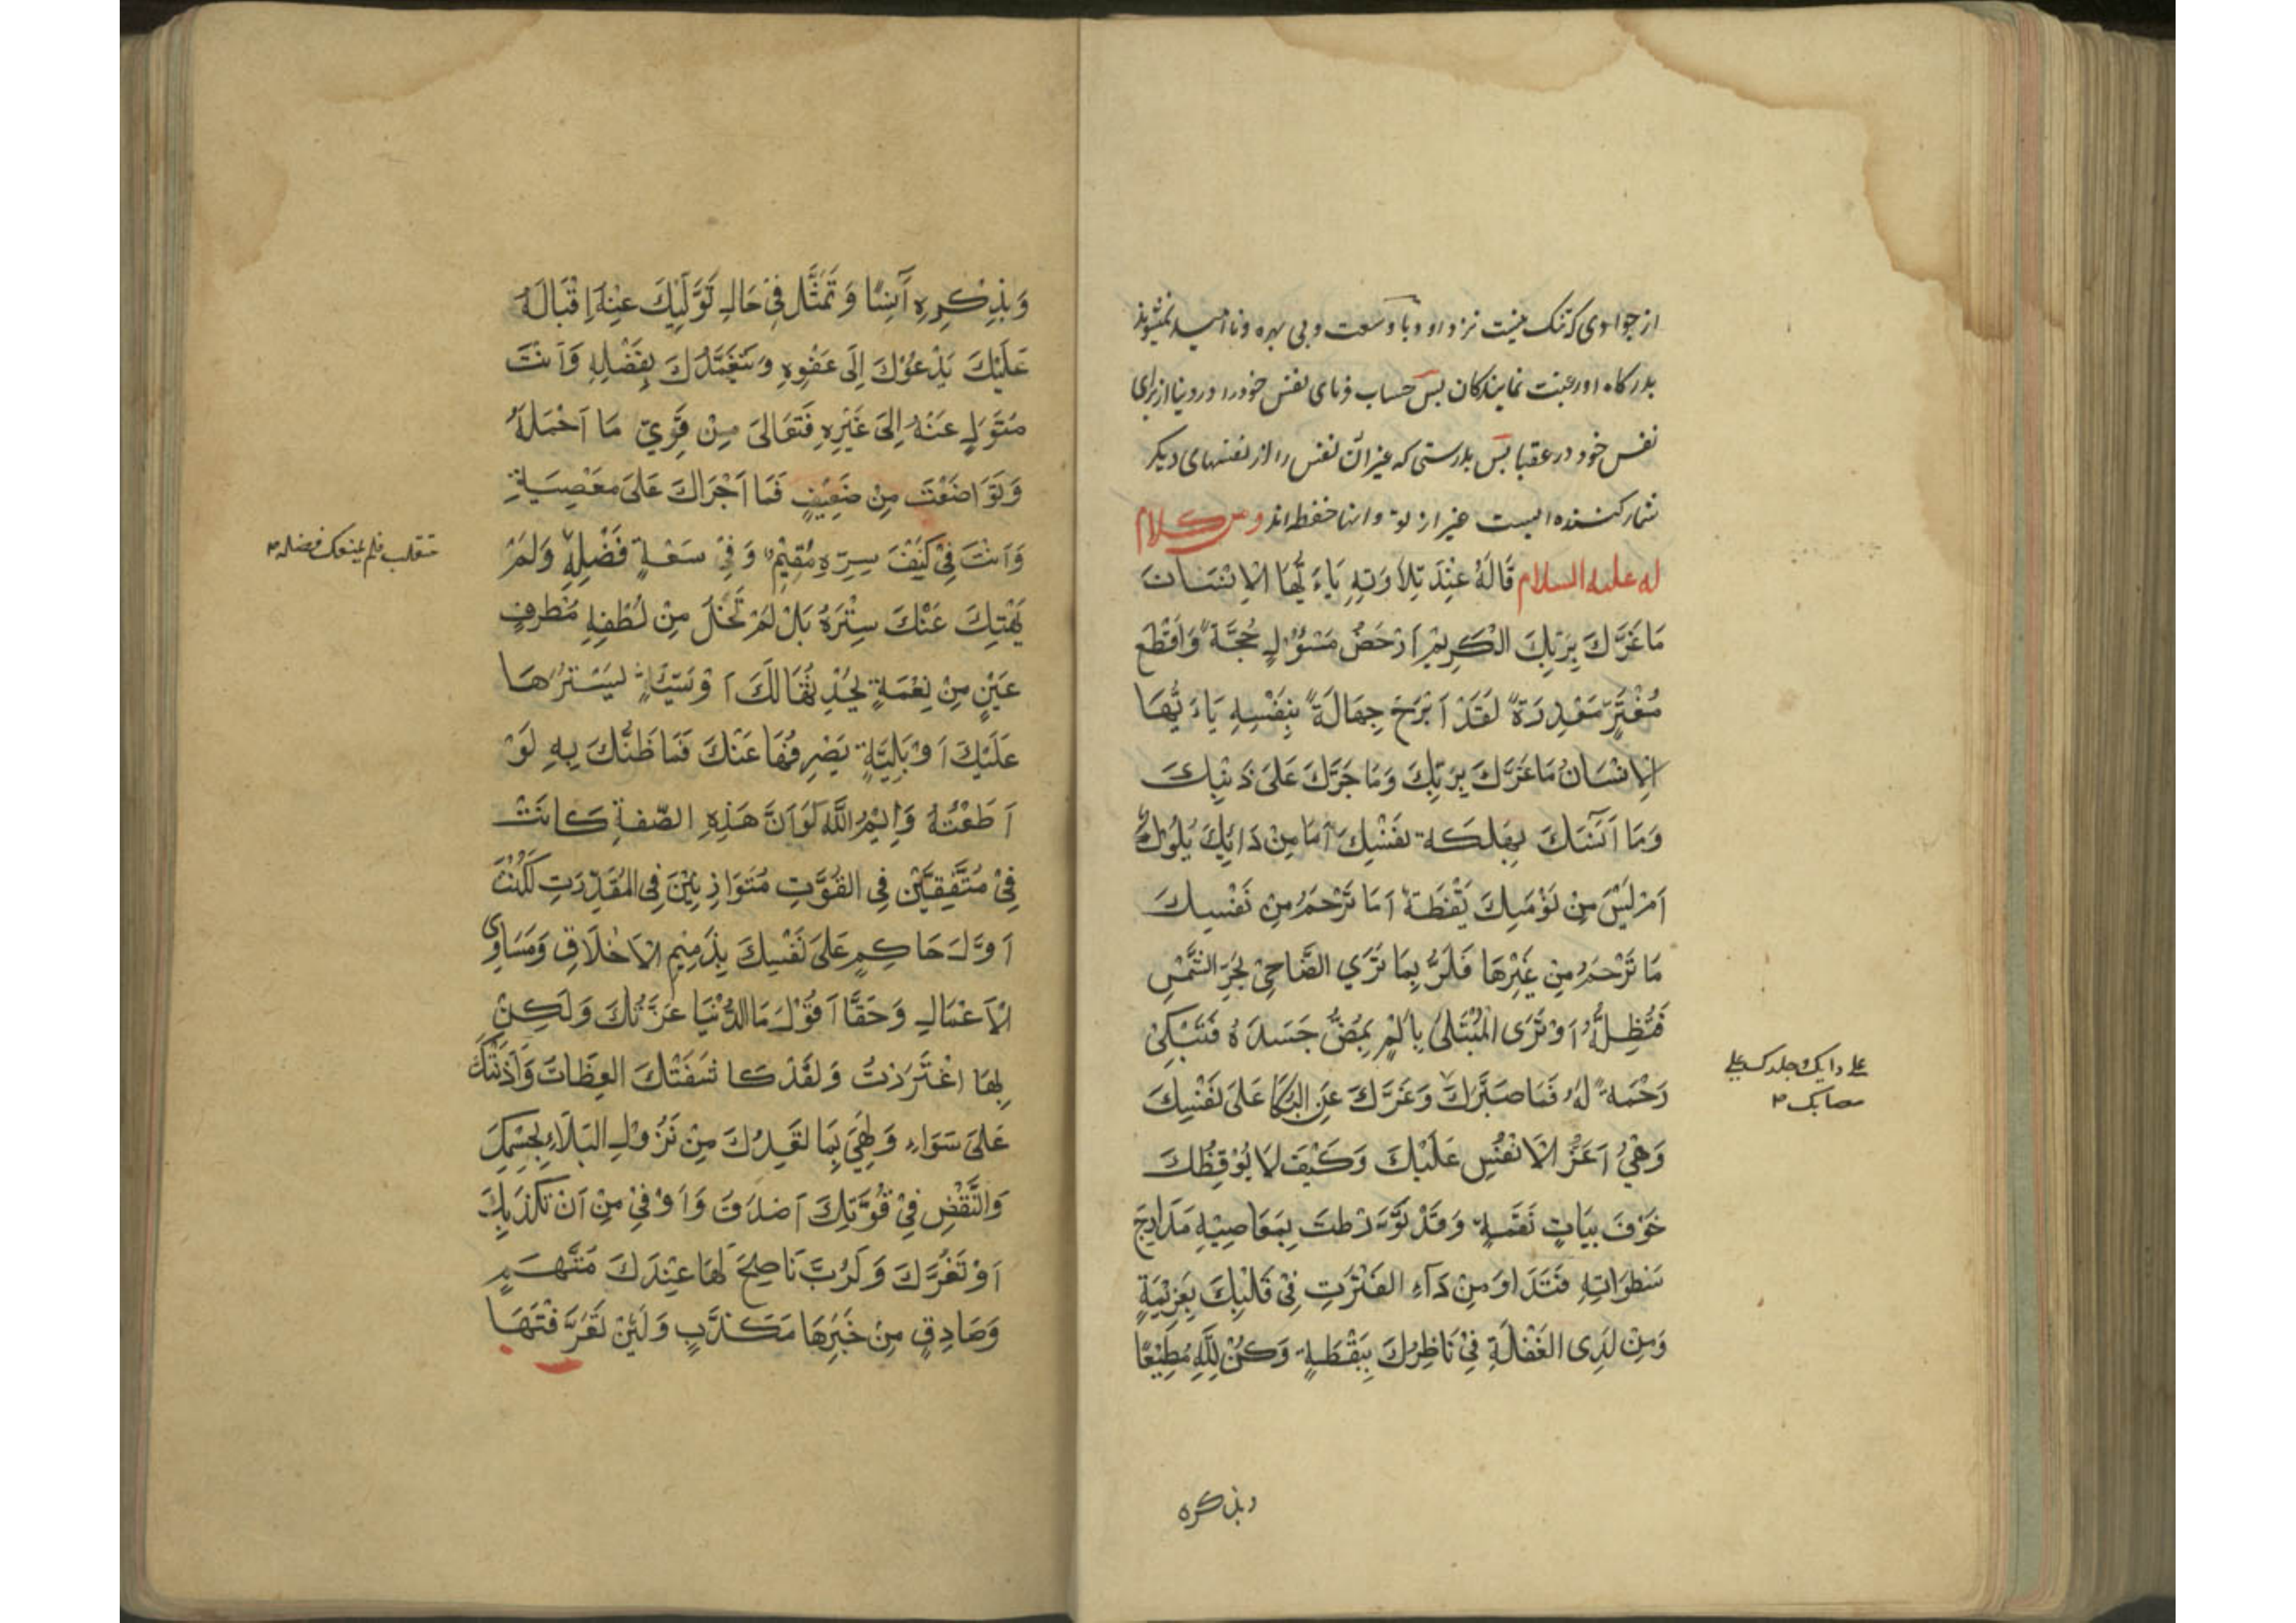 از جوادی که تنک نیست نزد او و با وسعت و بی بهره و ناامید نمیشوند
بدرکاه او رغبت نمایندکان پس حساب نمای نفس خود را در دنیا از برای
نفس خود در عقبا پس بدرستی که غیر آن نفس را از نفسهای دیکر
شمار کننده ایست غیر از تو و انها حفظه اند ومن کلام
له علیه السلام قَالَهُ عِنْدَ تِلَاوَتِهِ يَاءَيُّهَا الْاِنْسَانَ
مَا غَرَّكَ بِرَبِّكَ الْكَرِيْمِ اَدْحَضُ مَسْؤُلٍ حُجَّةً وَاَقْطَع
مُغْتَرٍّ مَعْذِرَةً لَقَدْ اَبْرَحَ جِهَالَةً بِنَفْسِهِ يَاءَيُّهَا
الْاِنْسَانُ مَا غَرَّكَ بِرَبِّكَ وَمَا جَرَّكَ عَلَى ذَنْبِكَ
وَمَا اَنَّسَكَ بِهَلَكَةِ نَفْسِكَ اَمَا مِنْ دَائِكَ بُلُوْلٌ
اَمْ لَيْسَ مِنْ نَوْمَتِكَ يَقْظَةٌ اَمَا تَرْحَمُ مِنْ نَفْسِكَ
مَا تَرْحَمُ مِنْ غَيْرِهَا فَلَرُبَّمَا تَرَي الضَّاحِيْ لِحَرِّ الشَّمْسِ
فَتُظِلُّهُ اَوْ تَرَى الْمُبْتَلَى بِاَلَمٍ يَمُضُّ جَسَدَهُ فَتَبْكِيْ
رَحْمَةً لَهُ فَمَا صَبَّرَكَ وَعَزَّكَ عَنِ البُكَا عَلَى نَفْسِكَ
وَهْيَ اَعَزُّ الْاَنْفُسِ عَلَيْكَ وَكَيْفَ لَا يُوْقِظُكَ
خَوْفَ بَيَاتِ نَقَمَةٍ وَقَدْ تَوَّرَطتَ بِمَعَاصِيْهِ مَدَارِجَ
سَطَوَاتِهِ فَتَدَاوَ مِنْ دَآءِ الفَتْرَتِ فِيْ قَلْبِكَ بِعَزِيْمَةٍ
وَمِنْ لَدِى الغَفْلَةِ فِيْ نَاظِرِكَ بِيَقْظَةٍ وَكُنْ لِلَّهِ مُطِيْعًا
علی دایک وجلدک علی
مصابک
وبذکره
وَبِذِكْرِهِ آنِسًا وَتَمَثَّل فِيْ حَالِ تَوَلِّيْكَ عَنْهُ اِقْبَالَهُ
عَلَيْكَ يَدْعُوْكَ اِلَى عَفْوِهِ وَيَتَغَمَّدُكَ بِفَضْلِهِ وَاَنْتَ
مُتَوَلٍ عَنْهُ اِلَى غَيْرِهِ فَتَعَالَى مِنْ قَوِيٍّ مَا اَحْمَلَهُ
وَتَوَاضَعْتَ مِنْ ضَعِيْفٍ فَمَا اَجْرَاكَ عَلَى مَعْصِيَةِ
وَاَنْتَ فِيْ كَنَفِ سِتْرِهِ مُقِيْمٌ وَفِيْ سَعَةِ فَضْلِهِ وَلَمْ
متقلب فلم یمنعک فضله
يَهْتِكَ عَنْكَ سِتْرَهُ بَلْ لَمْ تَخْلُ مِنْ لُطْفِهِ مَطْرفٍ
عَيْنٍ مِنْ نِعْمَةٍ يُحْدِثُهَا لَكَ اَوْ سَيِّئَةٍ يَسْتُرُهَا
عَلَيْكَ اَوْ بَلِيَّةٍ يَصْرِفُهَا عَنْكَ فَمَا ظَنُّكَ بِهِ لَوْ
اَطَعْتُهُ وَايْمُ اللَّهِ لَوْ اَنَّ هَذِهِ الصِّفةِ كَانَتْ
فِيْ مُتَّفِقَيْنِ فِي القُوَّتِ مُتَوَازِيَيْنَ فِي المَقْدِرَتِ لَكُنْتَ
اَوَّلَ حَاكِمٍ عَلَى نَفْسِكَ بِذَمِيْمِ الْاَخْلَاقِ وَمَسَاوِى
الْاَعْمَالِ وَحَقًّا اَقُوْلُ مَا الدُّنْيَا غَرَّتْكَ وَلَكِنْ
بِهَا اغْتَرَرْتَ وَلَقَدْ كَاشَفَتْكَ العِظَاتَ وَآذَنَتْكَ
عَلَى سَوَاءٍ وَلَهِيَ بِمَا تَعِدُكَ مِنْ نُزُوْلِ البَلَاءِ بِجِسْمِكَ
وَالنَّقْضِ فِيْ قُوَّتِكَ اَصْدَقُ وَاَوْفَيْ مِنْ اَنْ تَكْذِبَكَ
اَوْ تَغُرَّكَ وَلَرُبَّ نَاصِحَ لَهَا عِنْدَكَ مُتَّهَمٍ
وَصَادِقٍ مِنْ خَبَرِهَا مَكَذَّبٍ وَلَئِنْ تَعَرَّفْتَهَا